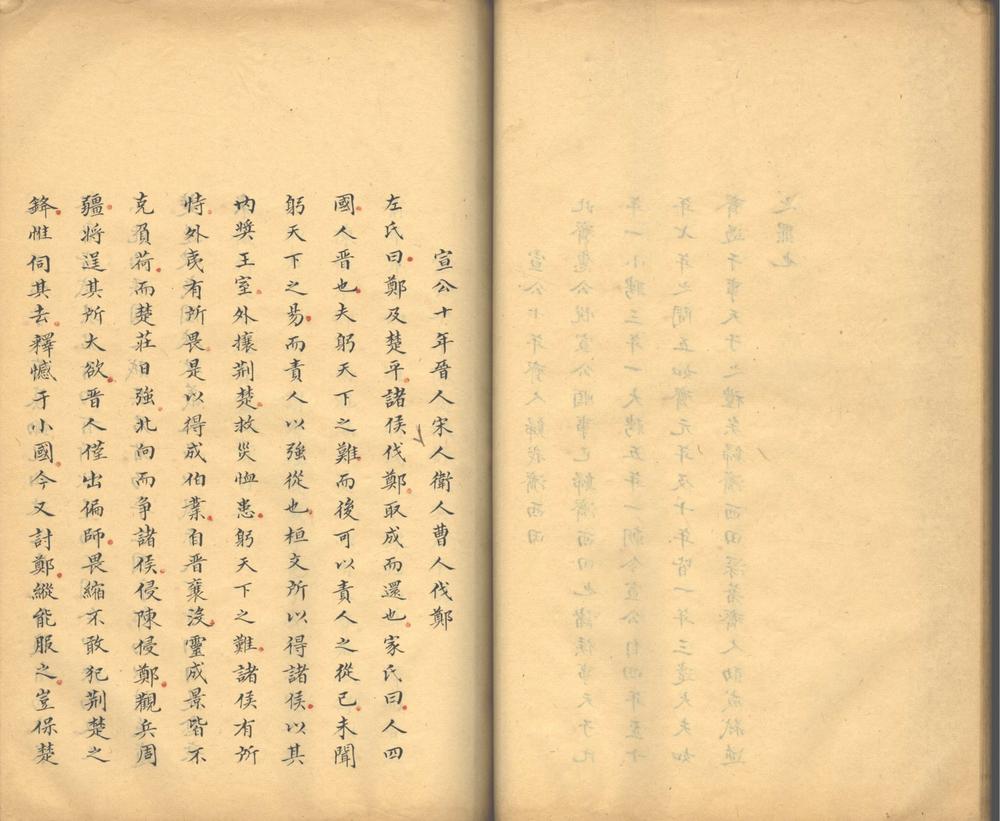 宣公十年晉人宋人衛人曹人伐鄭
左氏曰鄭及楚平諸侯伐鄭取成而還也家氏曰人四
國人晉也夫躬天下之難而後可以責人之從已未聞
躬天下之易而責人以強從也桓文所以得諸侯以其
内奬王室外攘荆楚救災恤患躬天下之難諸侯有所
恃外夷有所畏是以得成伯業自晉襄沒靈成景皆不
克負荷而楚莊日強北向而争諸侯侵陳侵鄭觀兵周
疆將逞其所大欲晉人僅出偏師畏縮不敢犯荆楚之
鋒惟伺其去釋憾于小國今又討鄭縱能服之豈保楚